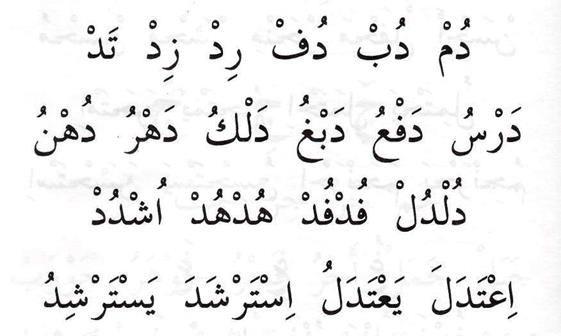 دُمْ دُبْ دُفْ رِدْ زِدْ تَدْ
دَرْسُ دَفْعُ دَبْغُ دَلْكُ دَهْرُ دُهْنُ
دُلْدُلْ فُدْفُدْ هُدْهُدْ اُشْدُدْ
اِعْتَدَلَ يَعْتَدَلُ اِسْتَرْشَدَ يَسْتَرْشِدُ